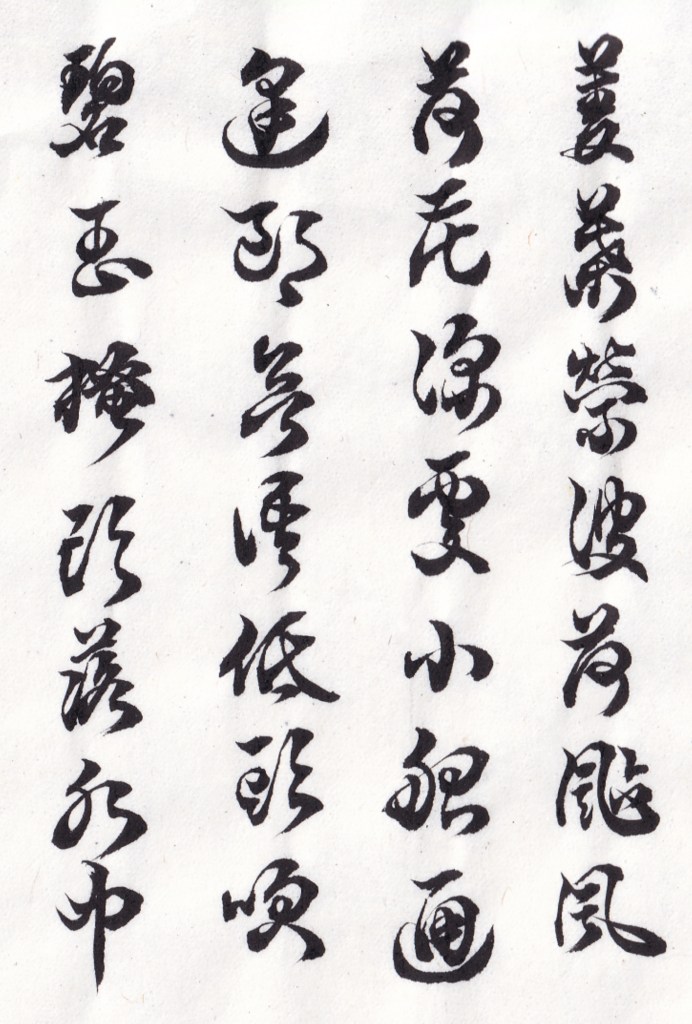 菱葉縈波荷颭風
荷花深處小船通
逢郎欲語低頭咲
碧玉搔頭落水中